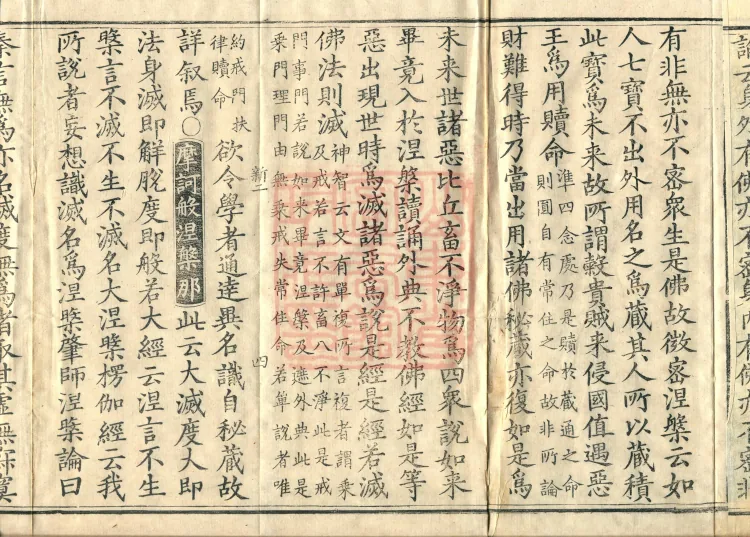 有非無亦不密衆生是佛故微密涅槃云如
人七寶不出外用名之爲藏其人所以藏積
此寶爲未来故所謂穀貴賊来侵國值遇惡
王爲用贖命準四念處乃是贖於藏通之命
則圓自有常住之命故非所論
財難得時乃當出用諸佛秘藏亦復如是爲
未来世諸惡比丘畜不淨物爲四衆說如来
畢竟入於涅槃讀誦外典不敎佛經如是等
惡出現世時爲滅諸惡爲說是經是經若滅
佛法則滅神智云文有單複所言複者謂乘
及戒若言不許畜八不淨此是戒
門事門若說如来畢竟涅槃及遮外典此是
乘門理門由無乘戒失常住命若單說者唯
新二
四
約戒門扶
律贖命
欲令學者通達異名識自秘藏故
詳叙焉○摩訶般涅槃那此云大滅度大即
法身滅即解脫度即般若大經云涅言不生
槃言不滅不生不滅名大涅槃楞伽經云我
所說者妄想識滅名爲涅槃肇師涅槃論曰
秦言無爲亦名滅度無爲者取其虛無寂寞